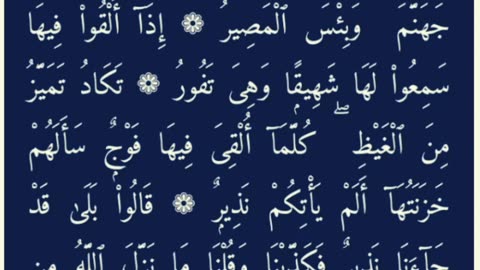 جَهَنَّمَ وَبِئْسَ ٱلْمَصِيرُ ۝ إِذَآ أُلْقُوا۟ فِيهَا
سَمِعُوا۟ لَهَا شَهِيقًا وَهِىَ تَفُورُ ۝ تَكَادُ تَمَيَّزُ
مِنَ ٱلْغَيْظِ ۖ كُلَّمَآ أُلْقِىَ فِيهَا فَوْجٌ سَأَلَهُمْ
خَزَنَتُهَآ أَلَمْ يَأْتِكُمْ نَذِيرٌ ۝ قَالُوا۟ بَلَىٰ قَدْ
جَآءَنَا نَذِيرٌ فَكَذَّبْنَا وَقُلْنَا مَا نَزَّلَ ٱللَّهُ مِن